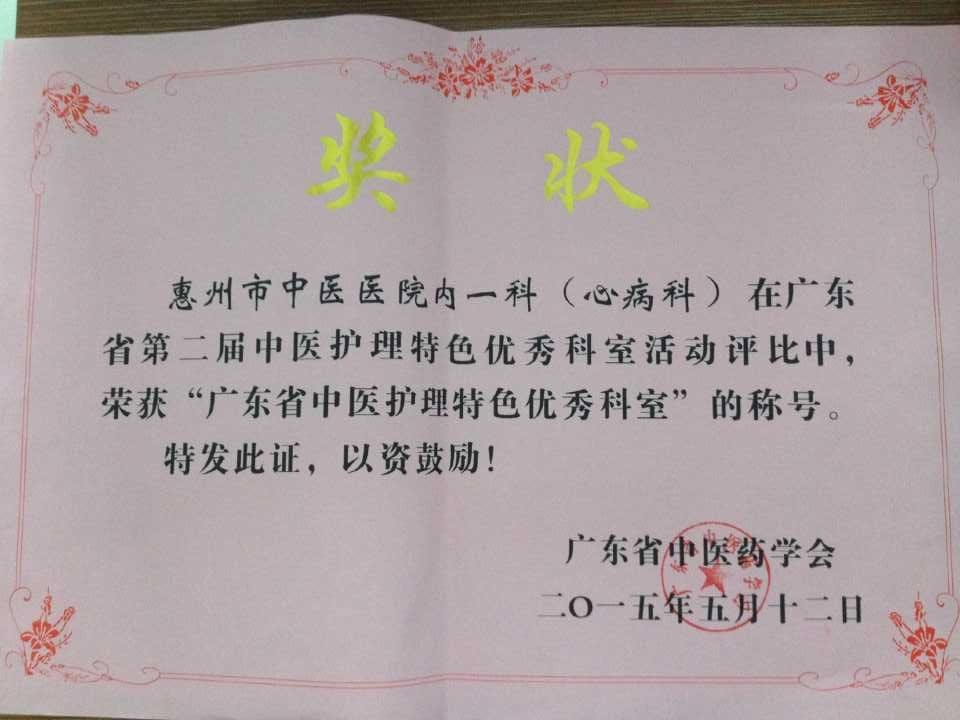 奖状
惠州市中医医院内一科（心病科）在广东
省第二届中医护理特色优秀科室活动评比中，
荣获“广东省中医护理特色优秀科室”的称号。
特发此证，以资鼓励！
广东省中医药学会
二〇一五年五月十二日